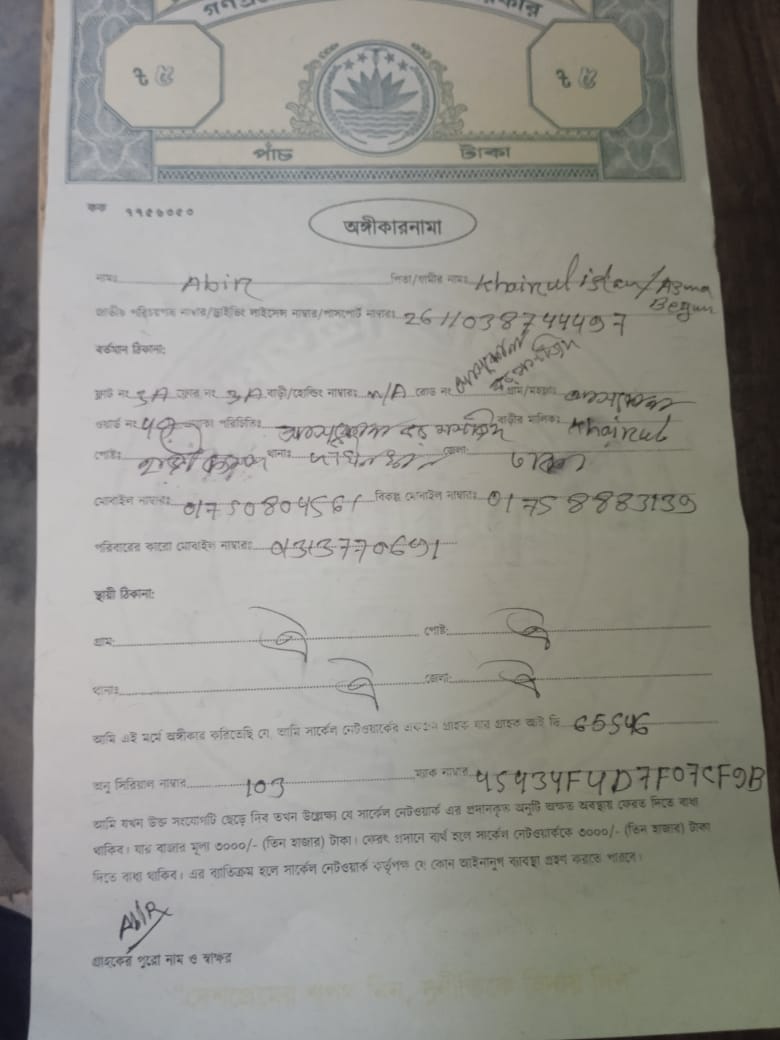 ৳ ৫ ৳ ৫
পাঁচ টাকা
কক ৭৭৫৬০৫০
অঙ্গীকারনামা
নামঃ Abir পিতা/স্বামীর নামঃ Khairul islam/Asma Begum
জাতীয় পরিচয়পত্র নাম্বার/ড্রাইভিং লাইসেন্স নাম্বার/পাসপোর্ট নাম্বারঃ 2611038744497
বর্তমান ঠিকানা:
ফ্লাট নং 3A ফ্লোর নং 3A বাড়ী/হোল্ডিং নাম্বারঃ N/A রোড নং গ্রাম/মহল্লাঃ
ওয়ার্ড নং পরিচিতিঃ বড় মসজিদ বাড়ীর মালিকঃ Khairul
পোষ্টঃ থানাঃ দক্ষিনখান জেলাঃ ঢাকা
মোবাইল নাম্বারঃ 01750804561 বিকল্প মোবাইল নাম্বারঃ 01758883139
পরিবারের কারো মোবাইল নাম্বারঃ 01313770691
স্থায়ী ঠিকানা:
গ্রাম: ঐ পোষ্ট: ঐ
থানাঃ ঐ জেলা: ঐ
আমি এই মর্মে অঙ্গীকার করিতেছি যে, আমি সার্কেল নেটওয়ার্কের একজন গ্রাহক যার গ্রাহক আই ডি 65546
অনু সিরিয়াল নাম্বার 103 ম্যাক নাম্বার 45434F4D7F07CF9B
আমি যখন উক্ত সংযোগটি ছেড়ে দিব তখন উল্লেখ্য যে সার্কেল নেটওয়ার্ক এর প্রদানকৃত অনুটি অক্ষত অবস্থায় ফেরত দিতে বাধ্য
থাকিব। যার বাজার মূল্য ৩০০০/- (তিন হাজার) টাকা। ফেরৎ প্রদানে ব্যর্থ হলে সার্কেল নেটওয়ার্ককে ৩০০০/- (তিন হাজার) টাকা
দিতে বাধ্য থাকিব। এর ব্যতিক্রম হলে সার্কেল নেটওয়ার্ক কর্তৃপক্ষ যে কোন আইনানুগ ব্যবস্থা গ্রহণ করতে পারবে।
Abir
গ্রাহকের পুরো নাম ও স্বাক্ষর